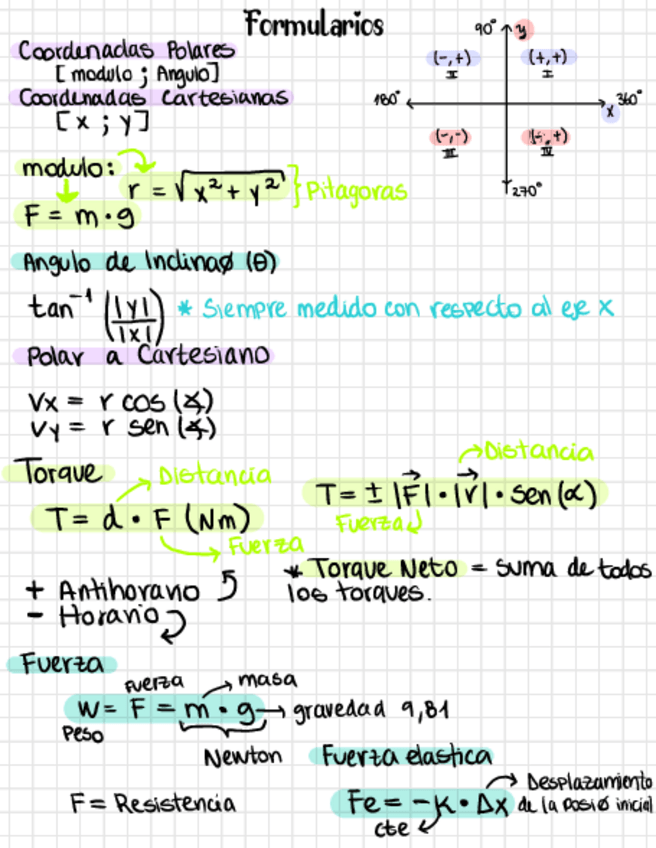 Formularios
Coordenadas Polares
[modulo ; Angulo]
Coordenadas Cartesianas
[x ; y]
90° y
(-,+) (+,+)
I I
180° 360°
x
(-,-) (-,+)
III IV
270°
modulo:
r = √x² + y² } Pitagoras
F = m · g
Angulo de Inclinaø (θ)
tan⁻¹ (|y|/|x|) * Siempre medido con respecto al eje x
Polar a Cartesiano
Vx = r cos (∡)
Vy = r sen (∡)
Torque
Distancia
T = d · F (Nm)
Fuerza
Distancia
T = ± |F⃗| · |r⃗| · sen (α)
Fuerza
+ Antihorario
- Horario
* Torque Neto = suma de todos
los torques.
Fuerza
Fuerza masa
W = F = m · g → gravedad 9,81
Peso
Newton
F = Resistencia
Fuerza elastica
Fe = -K · Δx
cte
Desplazamiento
de la posiø inicial